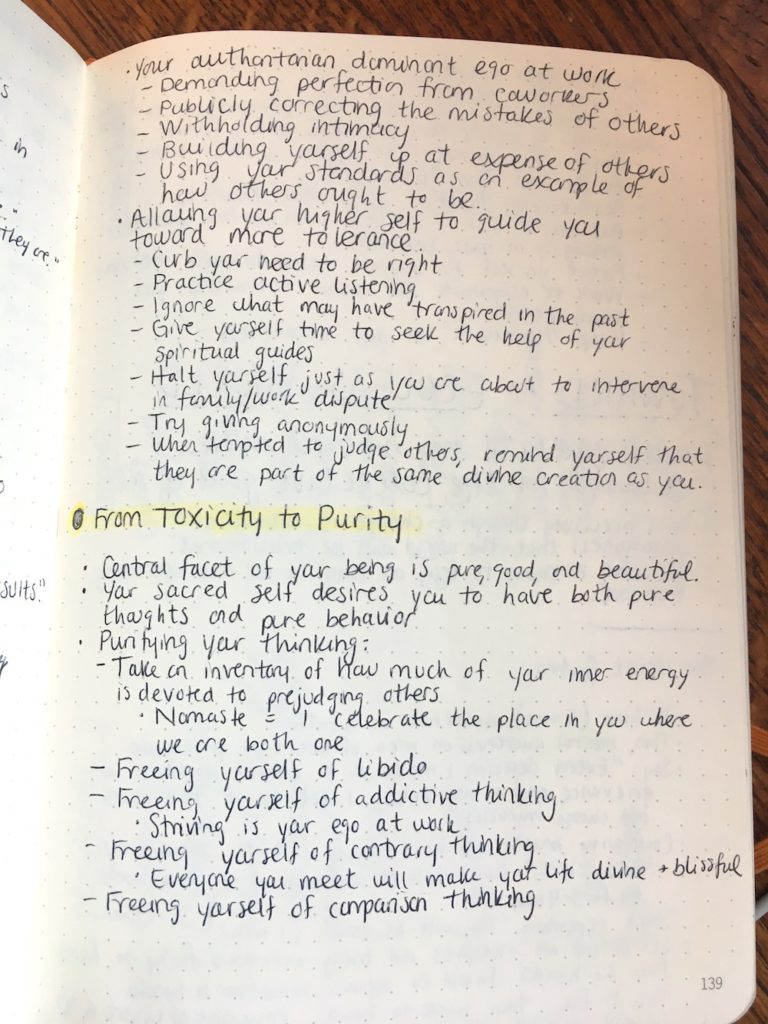 s
in
."
they are."
• Your authoritarian dominant ego at work
– Demanding perfection from coworkers
– Publicly correcting the mistakes of others
– Withholding intimacy
– Building yourself up at expense of others
– Using your standards as an example of
how others ought to be.
• Allowing your higher self to guide you
toward more tolerance.
– Curb your need to be right
– Practice active listening
– Ignore what may have transpired in the past
– Give yourself time to seek the help of your
spiritual guides
– Halt yourself just as you are about to intervene
in family/work dispute
– Try giving anonymously
– When tempted to judge others, remind yourself that
they are part of the same divine creation as you.
From Toxicity to Purity
• Central facet of your being is pure, good, and beautiful.
• Your sacred self desires you to have both pure
thoughts and pure behavior
suits."
• Purifying your thinking:
– Take an inventory of how much of your inner energy
is devoted to prejudging others
• Namaste = I celebrate the place in you where
we are both one
– Freeing yourself of libido
– Freeing yourself of addictive thinking
• Striving is your ego at work.
– Freeing yourself of contrary thinking
• Everyone you meet will make your life divine + blissful
– Freeing yourself of comparison thinking
139